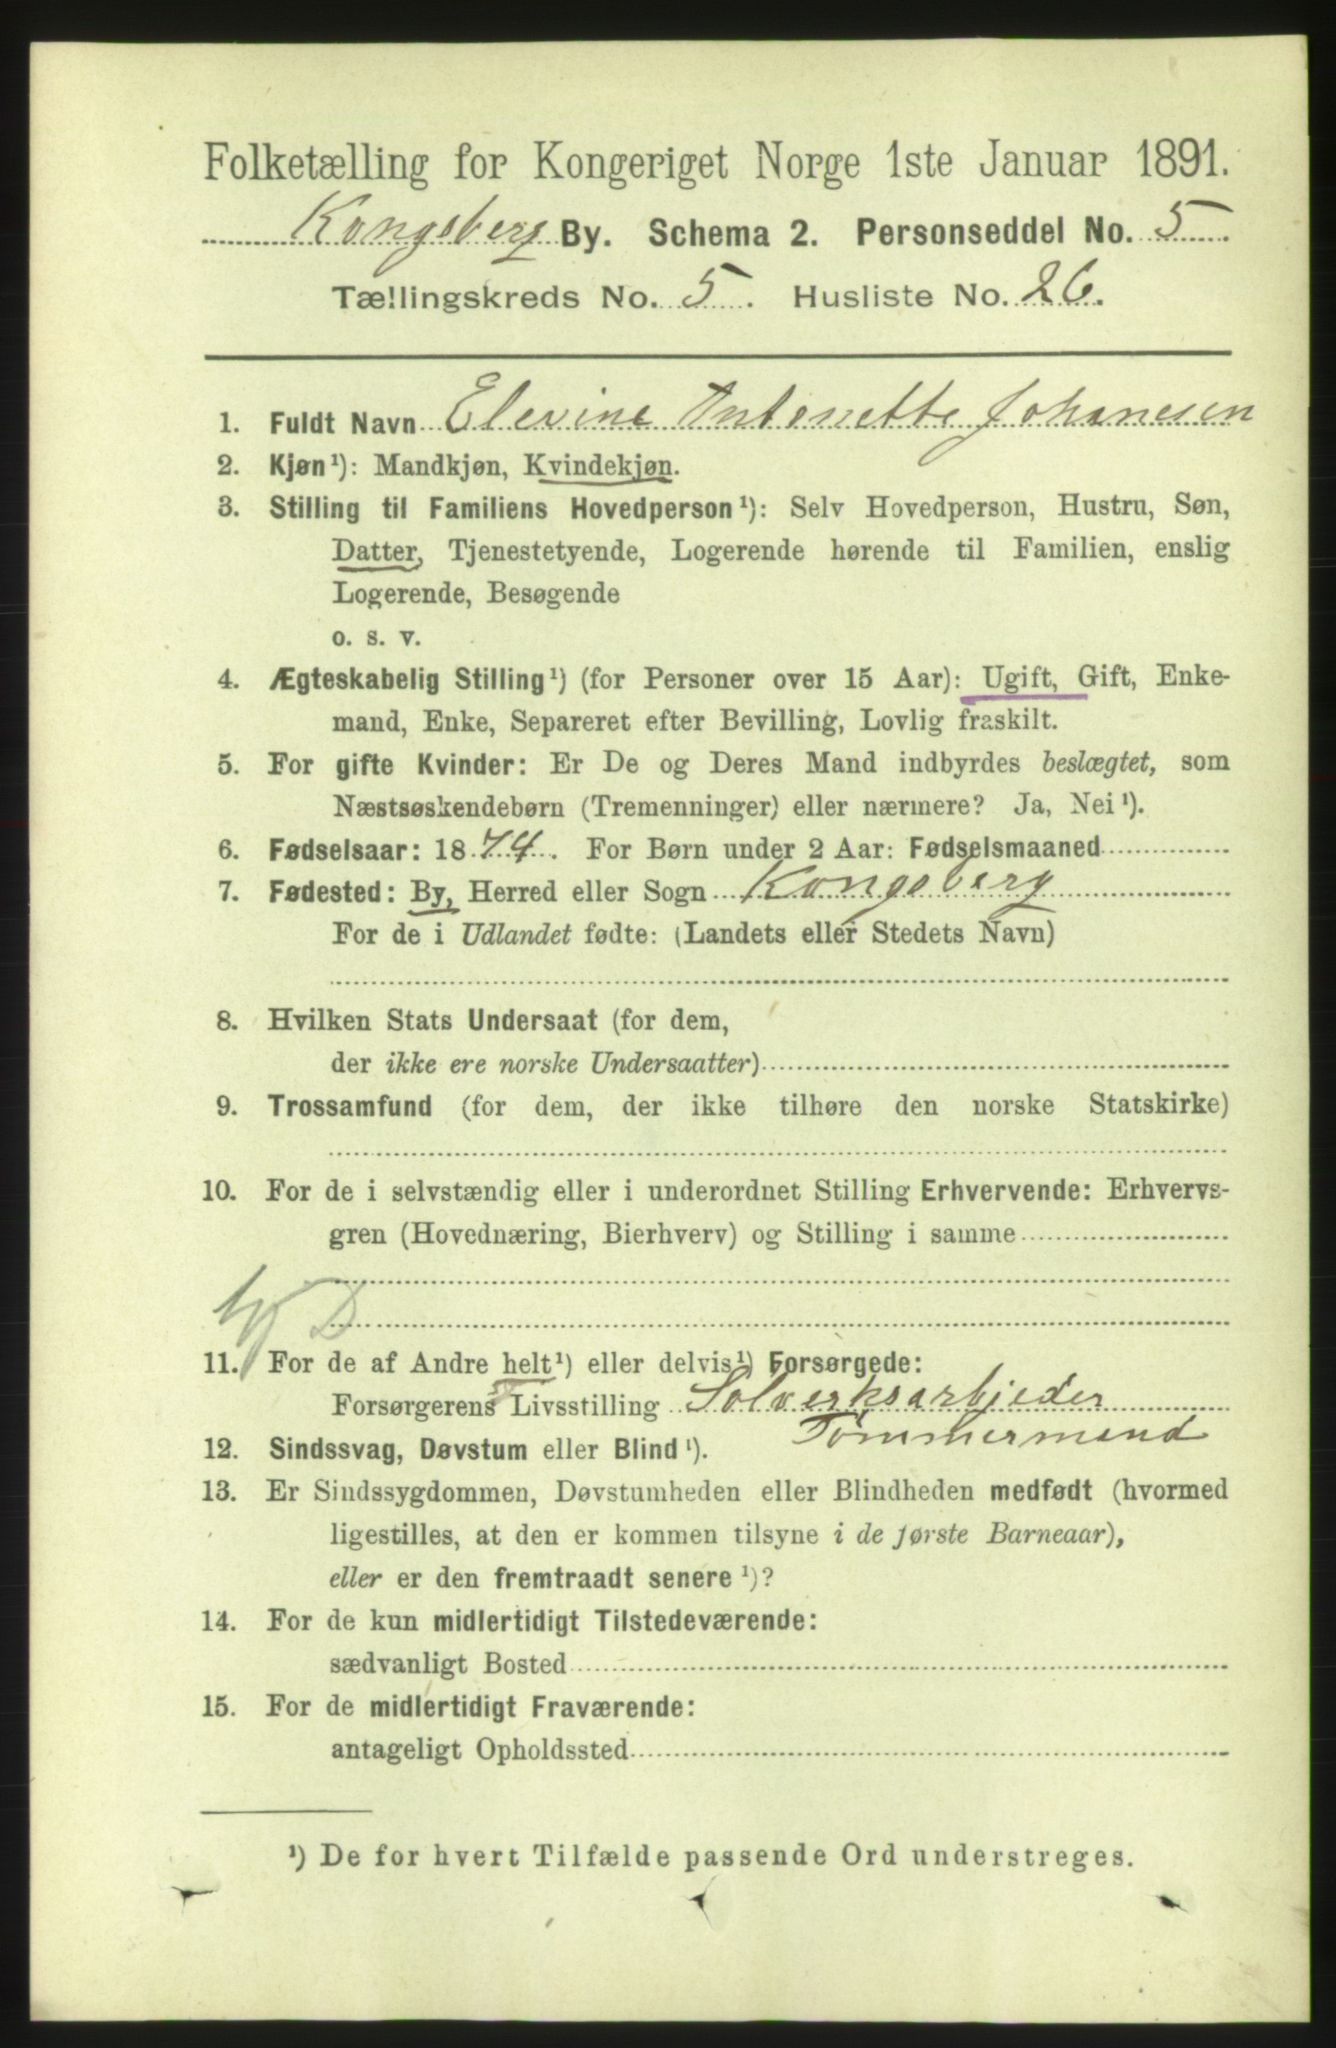 Folketælling for Kongeriget Norge 1ste Januar 1891.
Kongsberg By. Schema 2. Personseddel No. 5.
Tællingskreds No. 5. Husliste No. 26.
1. Fuldt Navn Elevine Antonette Johanesen
2. Kjøn ¹): Mandkjøn, Kvindekjøn.
3. Stilling til Familiens Hovedperson ¹): Selv Hovedperson, Hustru, Søn,
Datter, Tjenestetyende, Logerende hørende til Familien, enslig
Logerende, Besøgende
o. s. v.
4. Ægteskabelig Stilling ¹) (for Personer over 15 Aar): Ugift, Gift, Enke-
mand, Enke, Separeret efter Bevilling, Lovlig fraskilt.
5. For gifte Kvinder: Er De og Deres Mand indbyrdes beslægtet, som
Næstsøskendebørn (Tremenninger) eller nærmere? Ja, Nei ¹).
6. Fødselsaar: 1874. For Børn under 2 Aar: Fødselsmaaned
7. Fødested: By, Herred eller Sogn Kongsberg
For de i Udlandet fødte: (Landets eller Stedets Navn)
8. Hvilken Stats Undersaat (for dem,
der ikke ere norske Undersaatter)
9. Trossamfund (for dem, der ikke tilhøre den norske Statskirke)
10. For de i selvstændig eller i underordnet Stilling Erhvervende: Erhvervs-
gren (Hovednæring, Bierhverv) og Stilling i samme
D
11. For de af Andre helt ¹) eller delvis ¹) Forsørgede:
Forsørgerens Livsstilling Solverksarbjeder
Tømmermand
12. Sindssvag, Døvstum eller Blind ¹).
13. Er Sindssygdommen, Døvstumheden eller Blindheden medfødt (hvormed
ligestilles, at den er kommen tilsyne i de første Barneaar),
eller er den fremtraadt senere ¹)?
14. For de kun midlertidigt Tilstedeværende:
sædvanligt Bosted
15. For de midlertidigt Fraværende:
antageligt Opholdssted
¹) De for hvert Tilfælde passende Ord understreges.